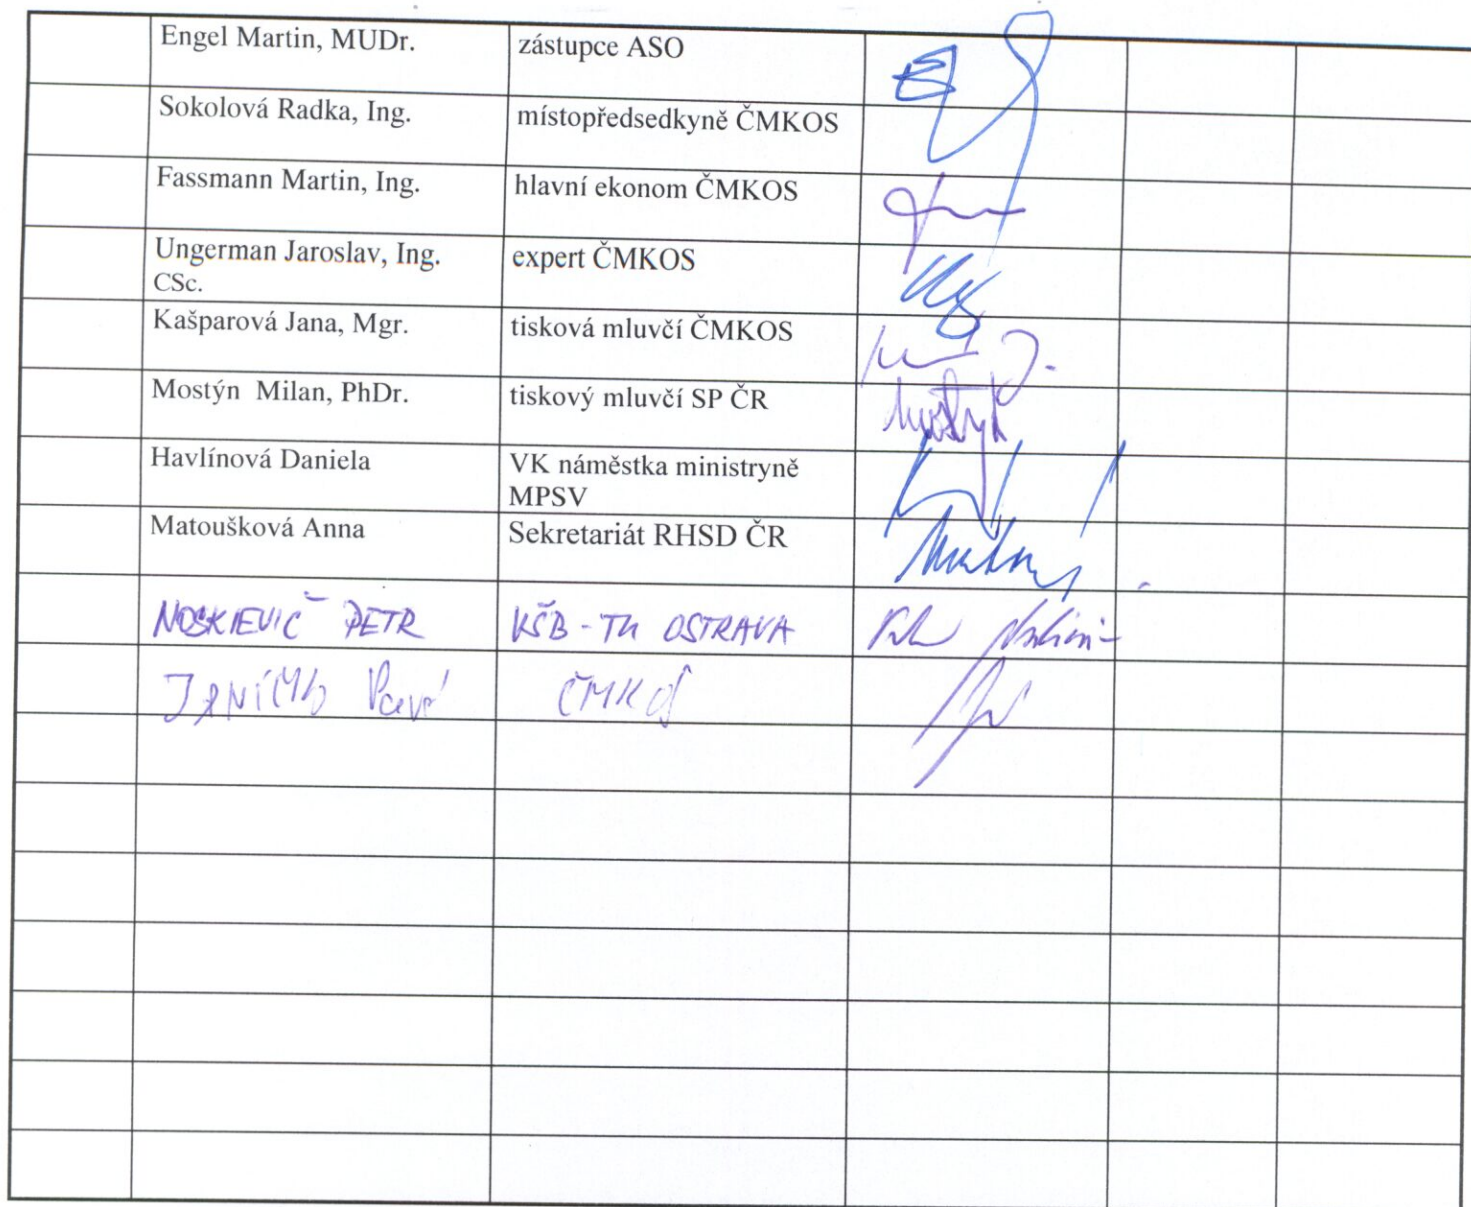 Engel Martin, MUDr. zástupce ASO
Sokolová Radka, Ing. místopředsedkyně ČMKOS
Fassmann Martin, Ing. hlavní ekonom ČMKOS
Ungerman Jaroslav, Ing. expert ČMKOS
CSc.
Kašparová Jana, Mgr. tisková mluvčí ČMKOS
Mostýn Milan, PhDr. tiskový mluvčí SP ČR
Mostýn
Havlínová Daniela VK náměstka ministryně
MPSV
Matoušková Anna Sekretariát RHSD ČR
NOSKIEVIČ PETR VŠB - TU OSTRAVA
ČMKOS